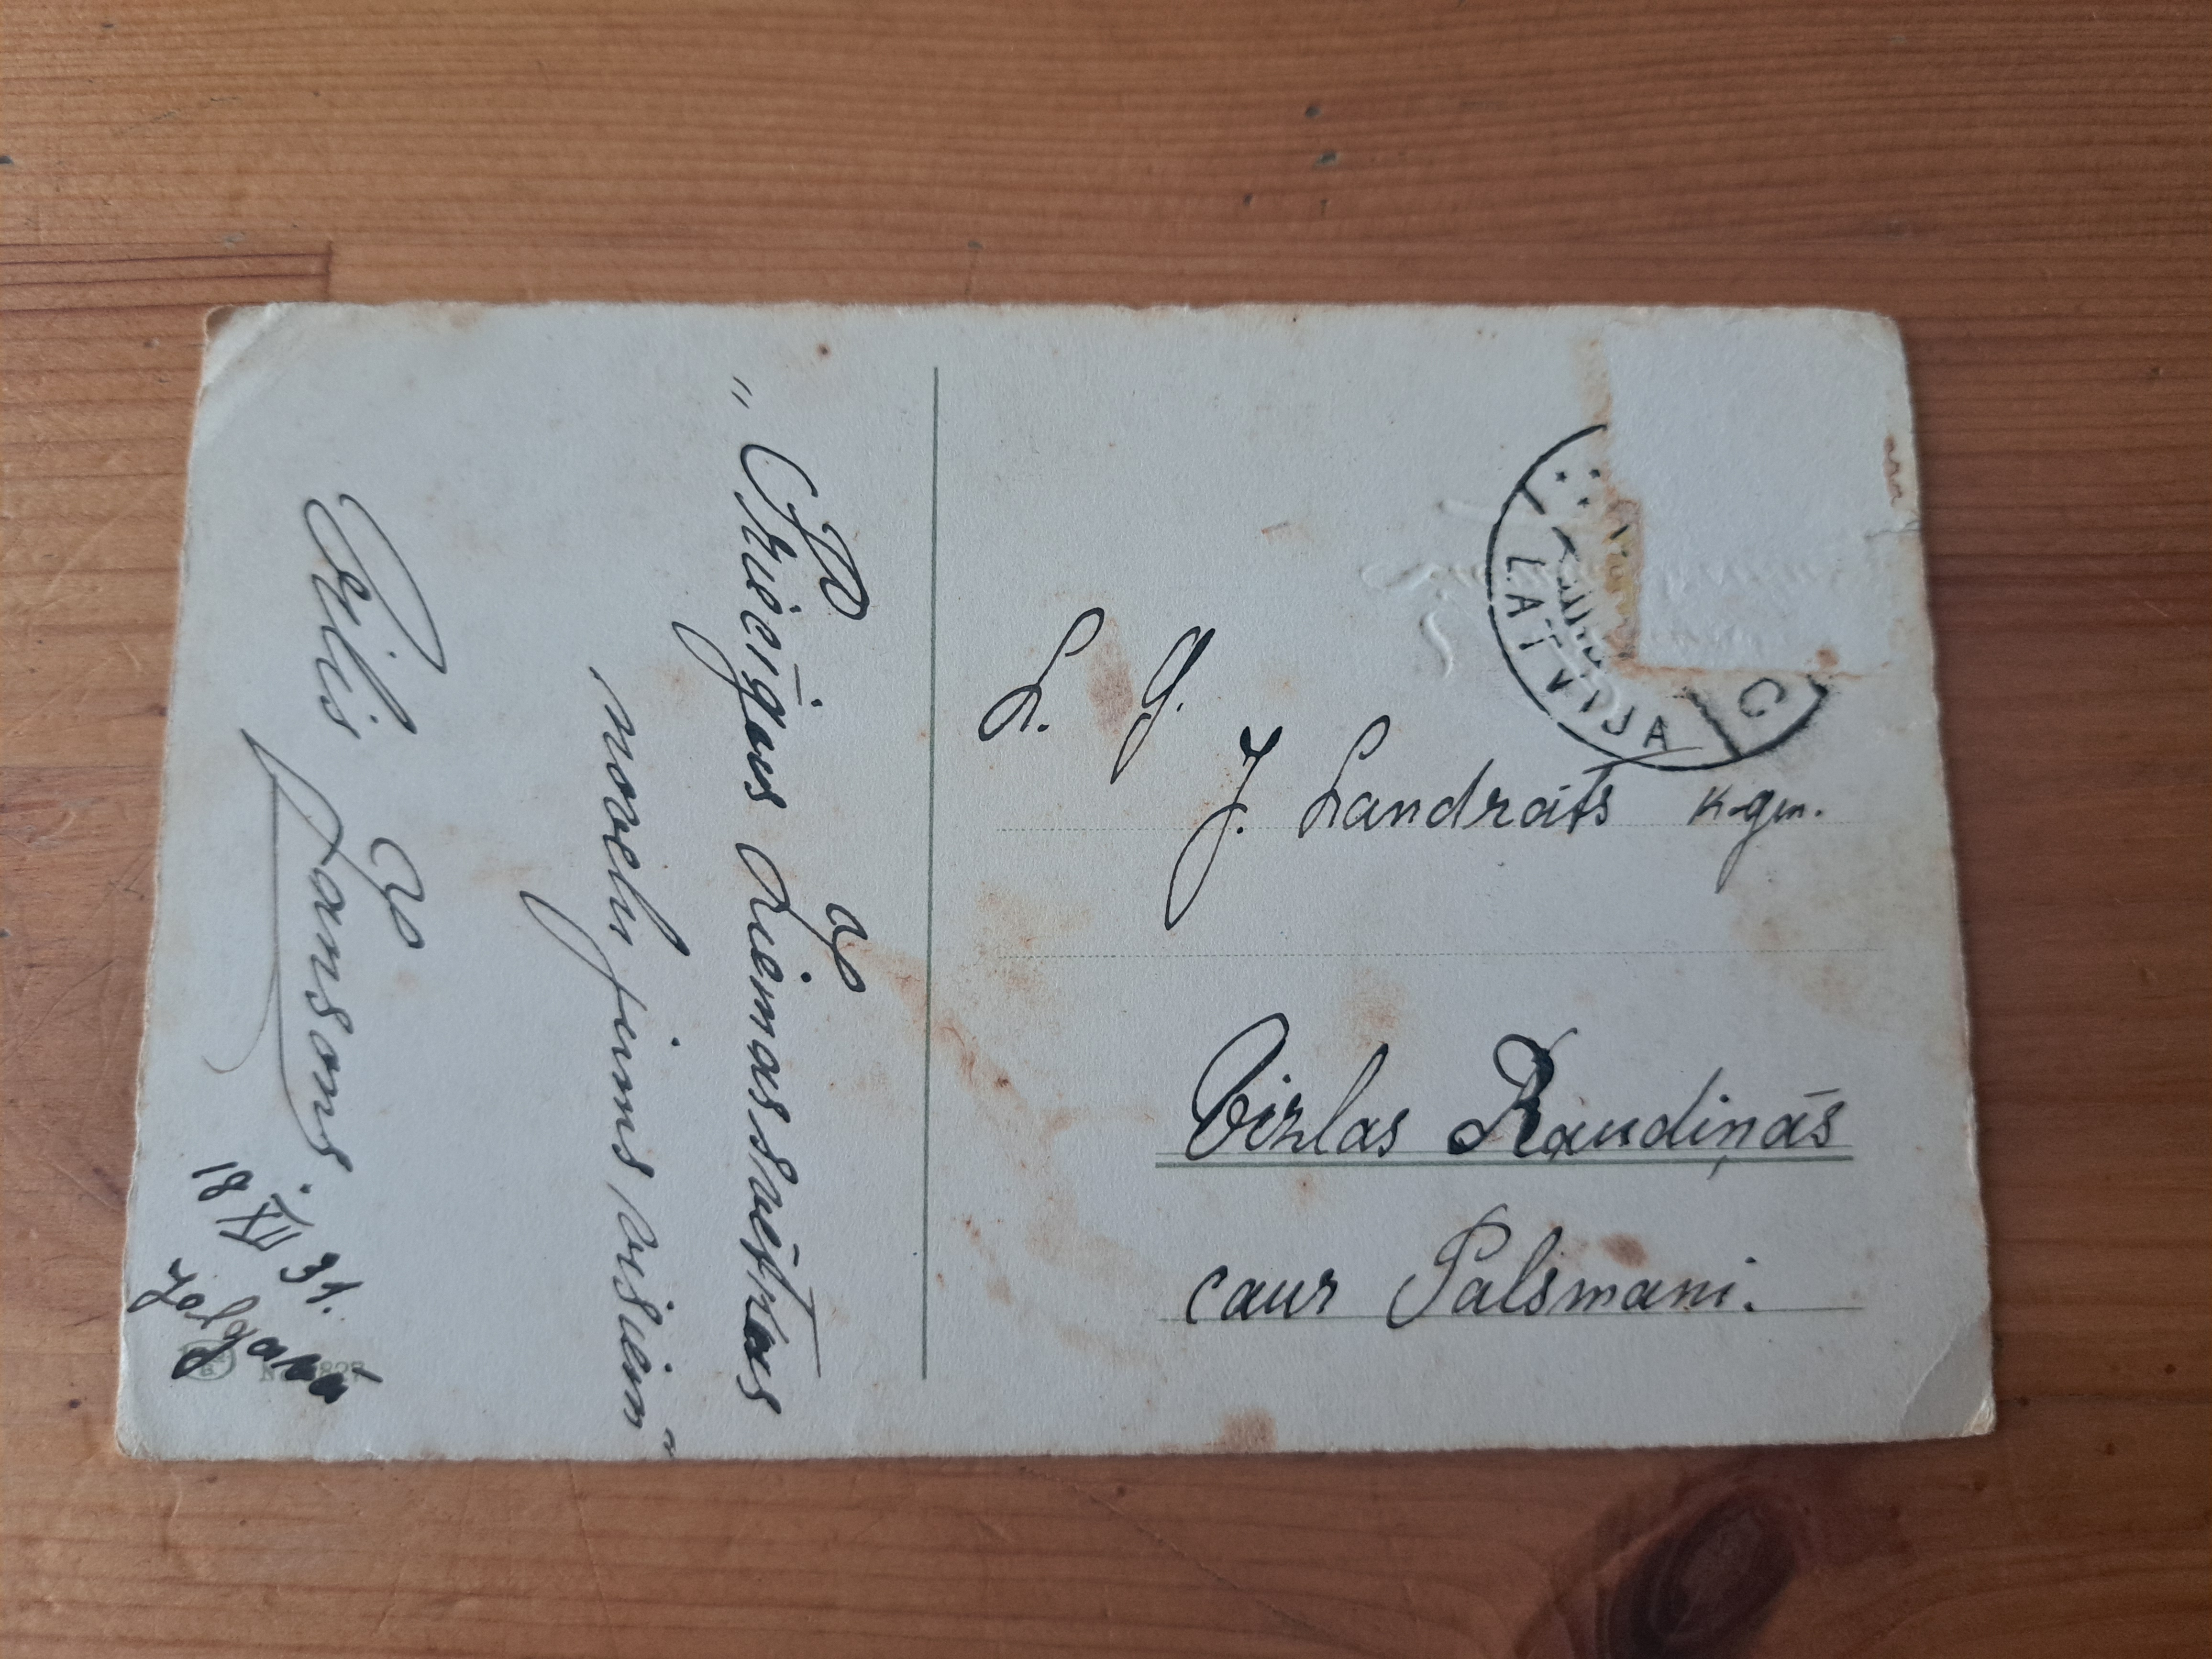 „Priecīgus Ziemassvētkus
novēlu jums visiem"
Vilis Jansons.
18 XII 31.
Jelgavā
LATVIJA
C
L. g.
J. Landrāts k-gm.
Vizlas Raudiņās
caur Palsmani.